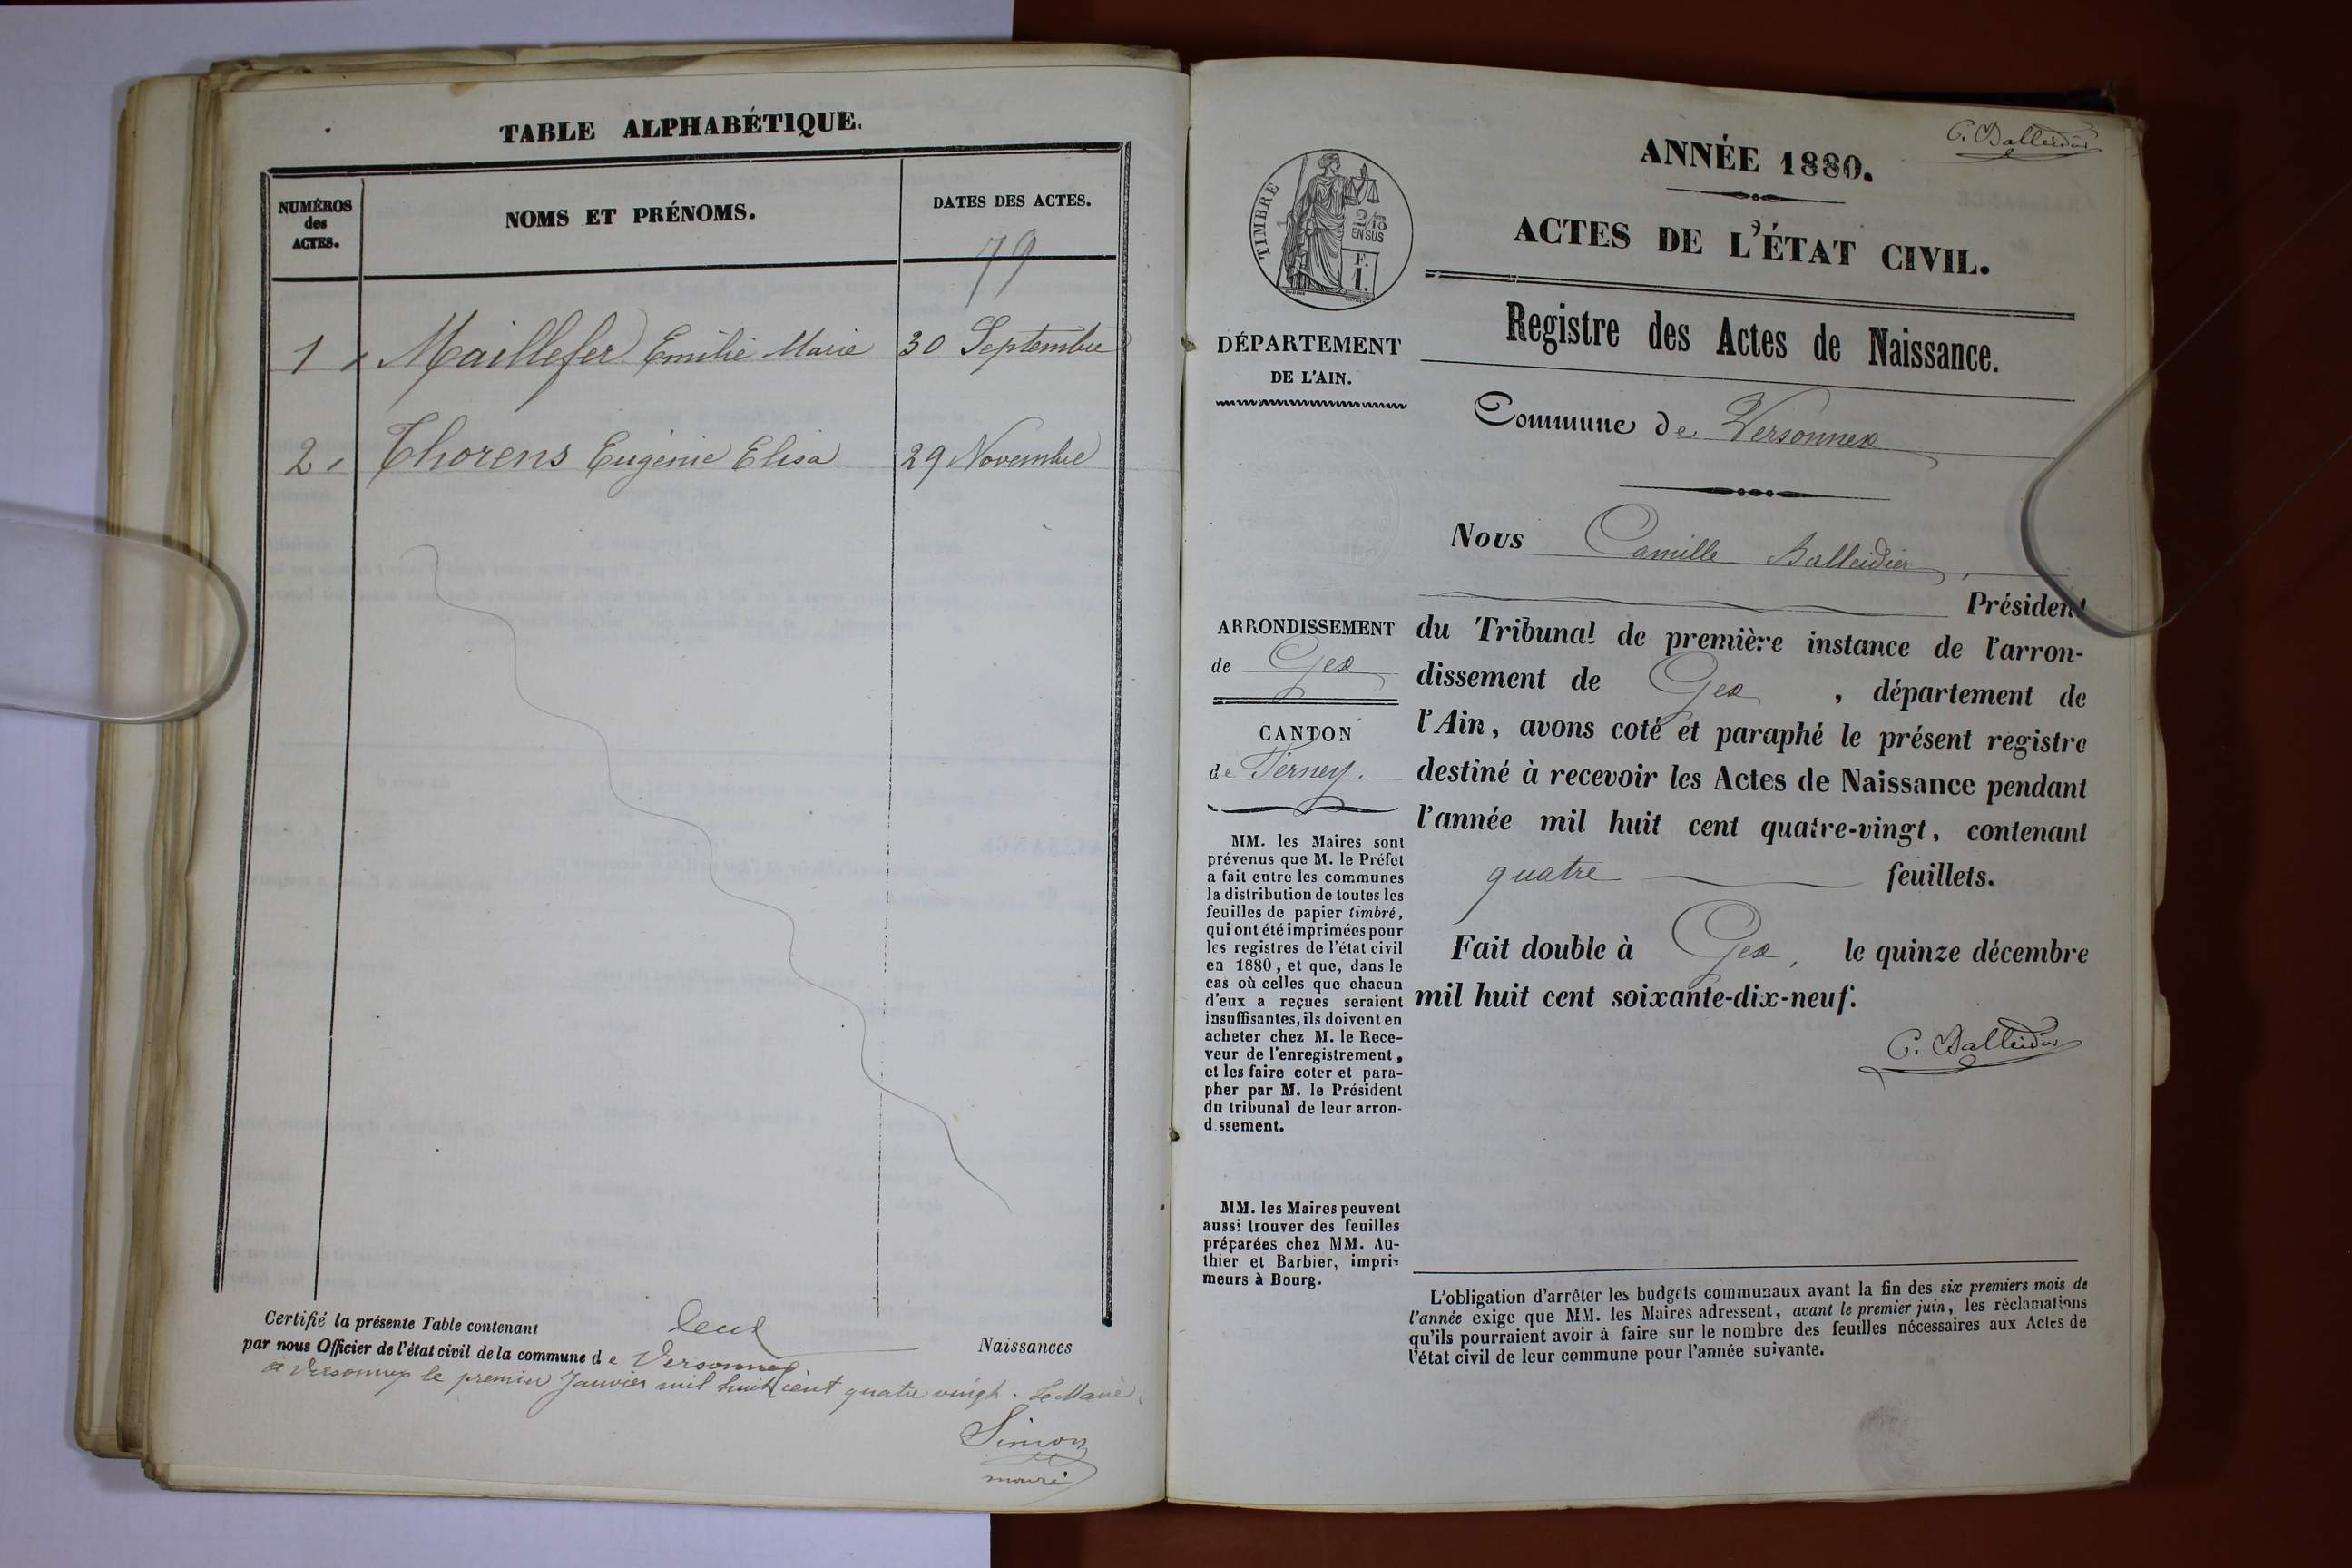 TABLE ALPHABÉTIQUE.
NUMÉROS
des
ACTES.
NOMS ET PRÉNOMS.
DATES DES ACTES.
79
1 Maillefer Emilie Marie 30 Septembre
2 Thorens Eugénie Elisa 29 Novembre
Certifié la présente Table contenant Naissances
par nous Officier de l'état civil de la commune de Versonnex
à Versonnex le premier Janvier mil huit cent quatre vingt. Le Maire
Simon
maire
C. Balleidier
ANNÉE 1880.
ACTES DE L'ÉTAT CIVIL.
Registre des Actes de Naissance.
Commune de Versonnex
TIMBRE
2/10
EN SUS
F.
1.
DÉPARTEMENT
DE L'AIN.
ARRONDISSEMENT
de Gex
CANTON
de Ferney.
MM. les Maires sont
prévenus que M. le Préfet
a fait entre les communes
la distribution de toutes les
feuilles de papier timbré,
qui ont été imprimées pour
les registres de l'état civil
en 1880, et que, dans le
cas où celles que chacun
d'eux a reçues seraient
insuffisantes, ils doivent en
acheter chez M. le Rece-
veur de l'enregistrement,
et les faire coter et para-
pher par M. le Président
du tribunal de leur arron-
d ssement.
MM. les Maires peuvent
aussi trouver des feuilles
préparées chez MM. Au-
thier et Barbier, impri-
meurs à Bourg.
Nous Camille Balleidier,
Président
du Tribunal de première instance de l'arron-
dissement de Gex, département de
l'Ain, avons coté et paraphé le présent registre
destiné à recevoir les Actes de Naissance pendant
l'année mil huit cent quatre-vingt, contenant
quatre feuillets.
Fait double à Gex, le quinze décembre
mil huit cent soixante-dix-neuf.
C. Balleidier
L'obligation d'arrêter les budgets communaux avant la fin des six premiers mois de
l'année exige que MM. les Maires adressent, avant le premier juin, les réclamations
qu'ils pourraient avoir à faire sur le nombre des feuilles nécessaires aux Actes de
l'état civil de leur commune pour l'année suivante.